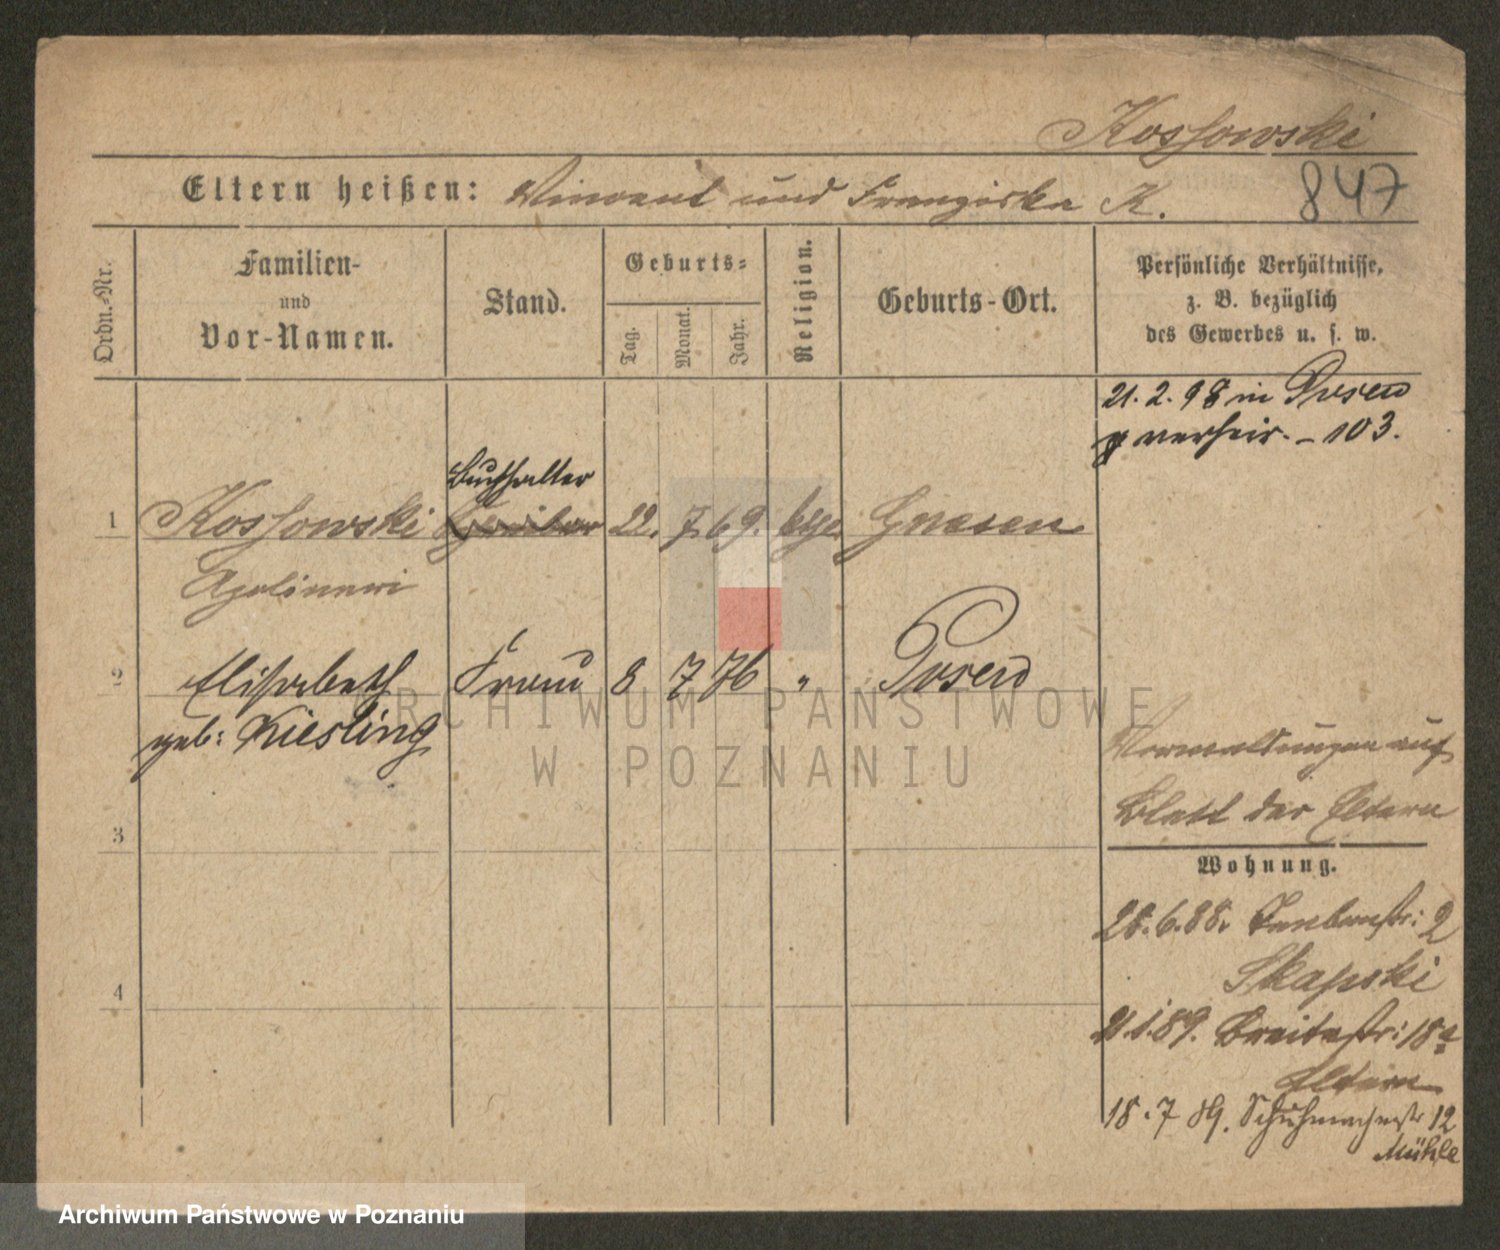 Kossowski
847
Eltern heißen: Vincent und Franziska K.
Ordn.-Nr.
Familien-
und
Vor-Namen.
Stand.
Geburts-
Tag.
Monat.
Jahr.
Religion.
Geburts-Ort.
Persönliche Verhältnisse,
z. B. bezüglich
des Gewerbes u. s. w.
21. 2. 98 in Posen
verheir. - 103.
Buchhalter
1 Kossowski 22. 7 69. Gnesen
Apolinari
2 Elisabeth Frau 8 7 76 " Posen
geb: Kiesling
3
4
Vormeldungen auf
Blatt der Eltern
Wohnung.
28.6.88. 2
Skapski
21.1.89. Breitestr: 18a
Eltern
18.7 89. Schuhmacherstr 12
Mühle
ARCHIWUM PAŃSTWOWE
W POZNANIU
Archiwum Państwowe w Poznaniu